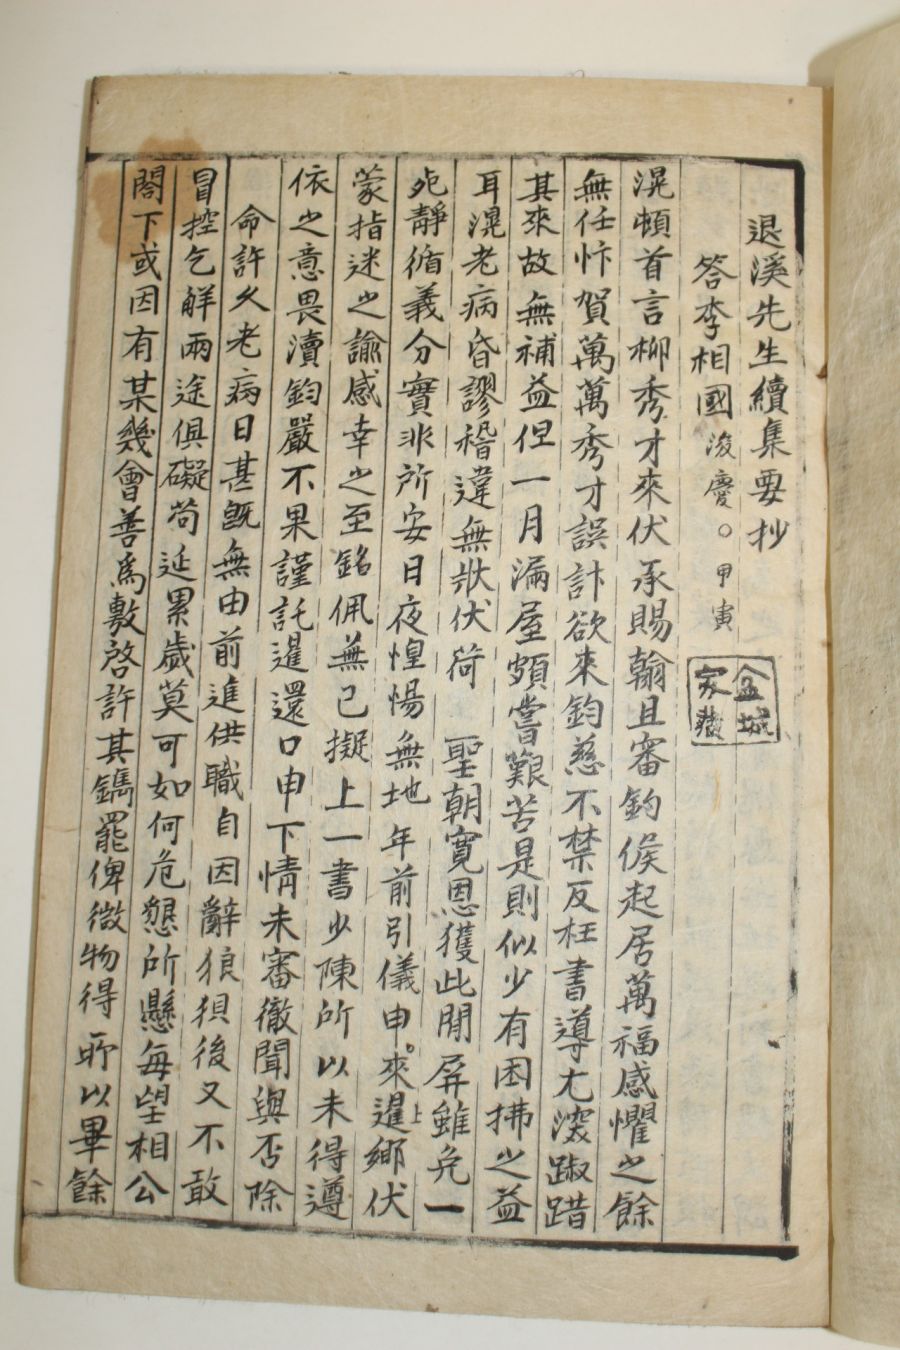 退溪先生續集要抄
答李相國浚慶○甲寅
金城家藏
滉頓首言柳秀才來伏承賜翰且審鈞候起居萬福感懼之餘
無任忭賀萬萬秀才誤計欲來鈞慈不禁反枉書導尤深踧踖
其來故無補益但一月漏屋頗嘗艱苦是則似少有困拂之益
耳滉老病昏謬稽違無狀伏荷 聖朝寬恩獲此閒屛雖免一
死靜循義分實非所安日夜惶惕無地年前引儀申來暹上鄉伏
蒙指迷之諭感幸之至銘佩無已擬上一書少陳所以未得遵
依之意畏瀆鈞嚴不果謹託暹還口申下情未審徹聞與否除
命許久老病日甚旣無由前進供職自因辭狼狽後又不敢
冒控乞解兩途俱礙苟延累歲莫可如何危懇所懸每望相公
閤下或因有某幾會善爲敷啓許其鐫罷俾微物得以畢餘